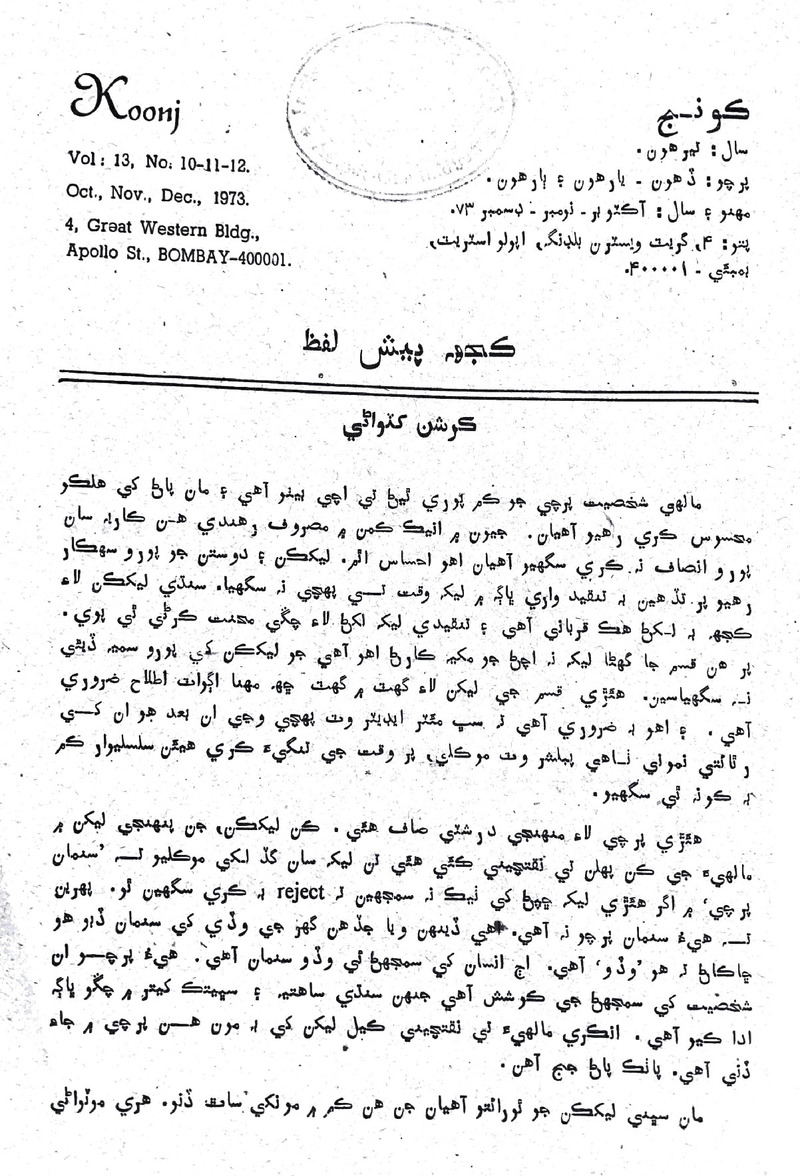 Koonj
Vol: 13, No: 10-11-12.
Oct., Nov., Dec., 1973.
4, Great Western Bldg.,
Apollo St., BOMBAY-400001.
ڪونج
سال: تيرهون.
پرچو: ڏهون - يارهون ۽ ٻارهون.
مهنو ۽ سال: آڪٽوبر - نومبر - ڊسمبر ۷۳.
پتو: ۴, گريٽ ويسٽرن بلڊنگ, اپولو اسٽريٽ,
بمبئي - ۴۰۰۰۰۱.
ڪجهہ پيش لفظ
ڪرشن کٽواڻي
مالهي شخصيت پرچي جو ڪم پوري ٿيڻ تي اچي بيٺو آهي ۽ مان پاڻ کي هلڪو
محسوس ڪري رهيو آهيان. جيون ۾ انيڪ ڪمن ۾ مصروف رهندي هن ڪارج سان
پورو انصاف نہ ڪري سگهيو آهيان اهو احساس اٿم. ليکڪن ۽ دوستن جو پورو سهڪار
رهيو پر تڏهين بہ تنقيد واري ڀاڱہ ۾ ليک وقت تي پهچي نہ سگهيا. سنڌي ليکڪن لاءِ
ڪجهہ بہ لکڻ هڪ قرباني آهي ۽ تنقيدي ليک لکڻ لاءِ چڱي محنت ڪرڻي ٿي پوي.
پر هن قسم جا گهڻا ليک نہ اچڻ جو مکيہ ڪارڻ اهو آهي جو ليکڪن کي پورو سميہ ڏيئي
نہ سگهياسين. هئڙي قسم جي ليکن لاءِ گهٽ ۾ گهٽ ڇهہ مهنا اڳواٽ اطلاح ضروري
آهي. ۽ اهو بہ ضروري آهي تہ سڀ مئٽر ايڊيٽر وٽ پهچي وڃي ان بعد هو ان کي
رٿائتي نموني ٺاهي پبلشر وٽ موڪلي, پر وقت جي تنگيءَ ڪري هيئن سلسليوار ڪم
بہ ڪونہ ٿي سگهيو.
هئڙي پرچي لاءِ منهنجي درشٽي صاف هئي. ڪن ليکڪن, جن پنهنجي ليکن ۾
مالهيءَ جي ڪن پهلن تي نقتچيني ڪئي هئي تن ليک سان گڏ لکي موڪليو تہ ’سنمان
پرچي‘ ۾ اگر هئڙي ليک ڇپڻ کي ٺيڪ نہ سمجهين تہ reject بہ ڪري سگهين ٿو. پهرين
تہ هيءُ سنمان پرچو نہ آهي. اهي ڏينهن ويا جڏهن گهر جي وڏي کي سنمان ڏبو هو
ڇاڪاڻ تہ هو ’وڏو‘ آهي. اڄ انسان کي سمجهڻ ئي وڏو سنمان آهي. هيءُ پرچو ان
شخصيت کي سمجهڻ جي ڪوشش آهي جنهن سنڌي ساهتيہ ۽ سڀيتڪ کيتر ۾ چڱو ڀاڱہ
ادا ڪيو آهي. انڪري مالهيءَ تي نقتچيني ڪيل ليکن کي بہ مون هن پرچي ۾ جاءِ
ڏني آهي. پاٺڪ پاڻ جج آهن.
مان سڀني ليکڪن جو ٿورائتو آهيان جن هن ڪم ۾ مونکي ساٿ ڏنو. هري موٽواڻي